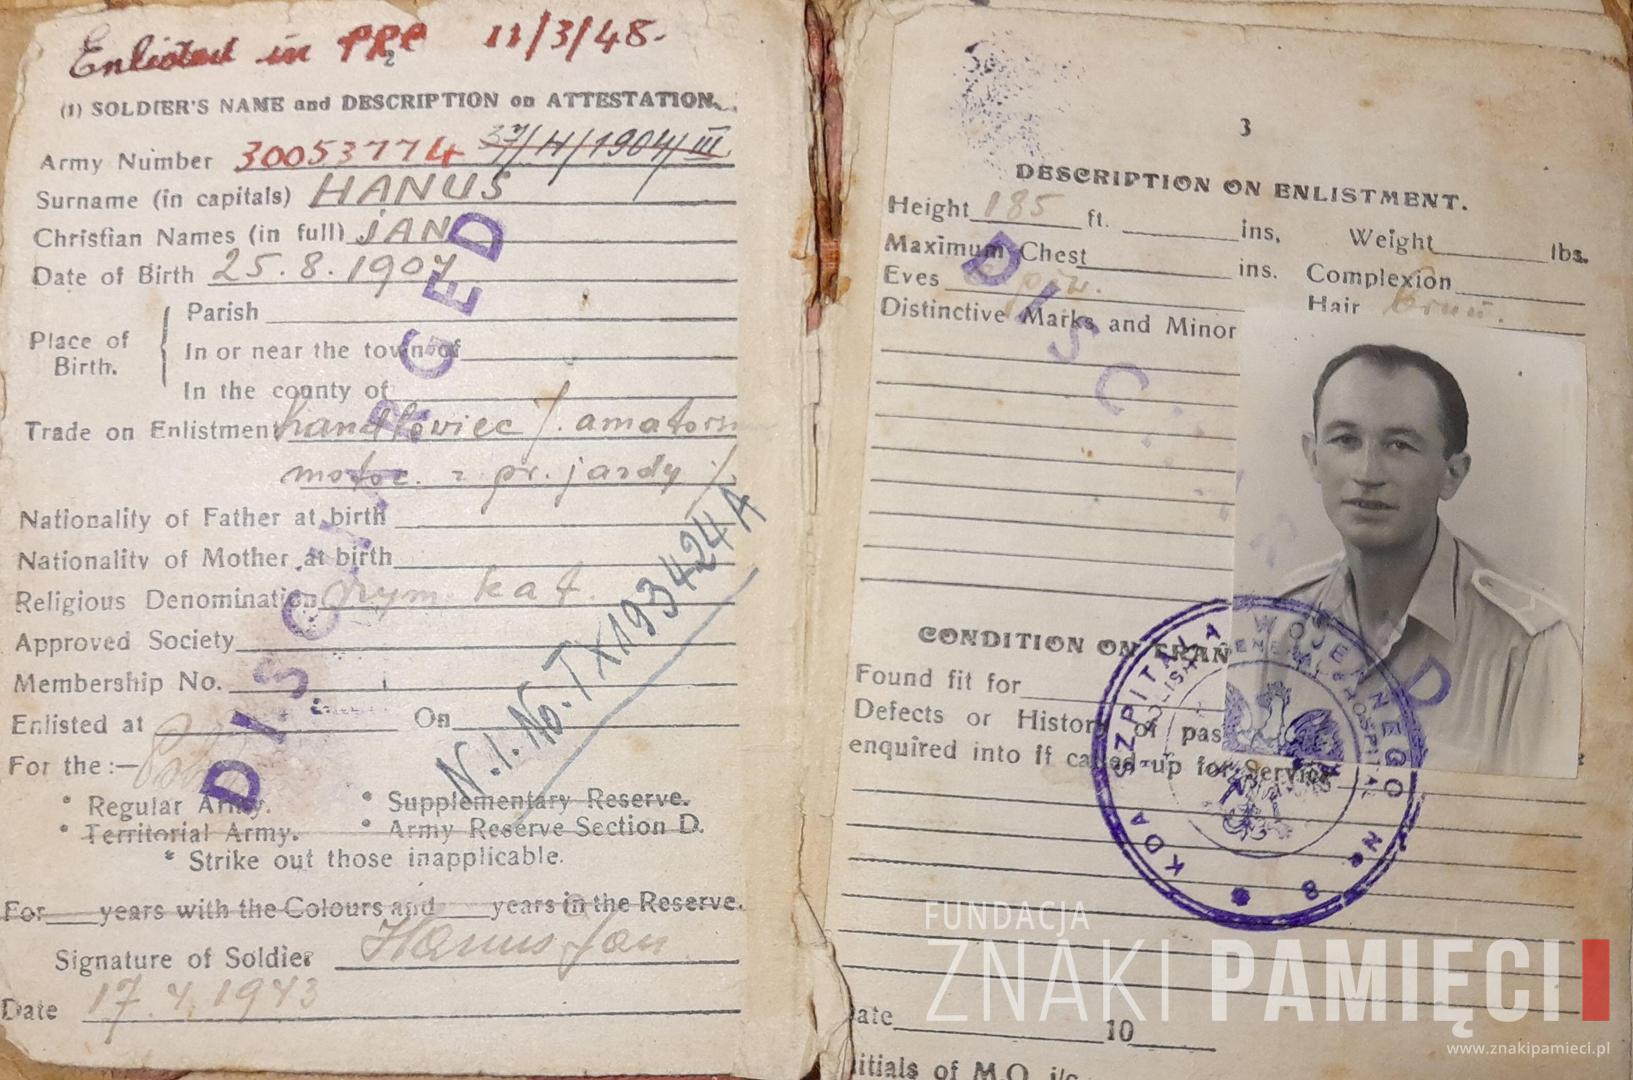 Enlisted in PRC 11/3/48.
(1) SOLDIER'S NAME and DESCRIPTION on ATTESTATION.
Army Number 30053774 37/H/1904/III
Surname (in capitals) HANUS
Christian Names (in full) JAN
Date of Birth 25.8.1907
Place of Birth.
Parish
In or near the town of
In the county of
Trade on Enlistment handlowiec /. amatorsk
motoc. z pr. jazdy /.
Nationality of Father at birth
Nationality of Mother at birth
Religious Denomination rzym. kat.
Approved Society
Membership No.
N.I. No. TX193424A
Enlisted at On
For the :—
* Regular Army. * Supplementary Reserve.
* Territorial Army. * Army Reserve Section D.
* Strike out those inapplicable.
For years with the Colours and years in the Reserve.
Signature of Soldier Hanus Jan
Date 17.4.1943
DISCHARGED
3
DESCRIPTION ON ENLISTMENT.
Height 185 ft. ins. Weight lbs.
Maximum Chest ins. Complexion
Eyes piw. Hair
Distinctive Marks and Minor
DISC D
CONDITION ON TRAN
Found fit for
Defects or History of pas
enquired into if called-up for Service
KDA SZPITALA WOJENNEGO Nr 8
POLISH GENERAL HOSPITAL
ate 10
itials of M.O. i/c
FUNDACJA
ZNAKI PAMIĘCI
www.znakipamieci.pl